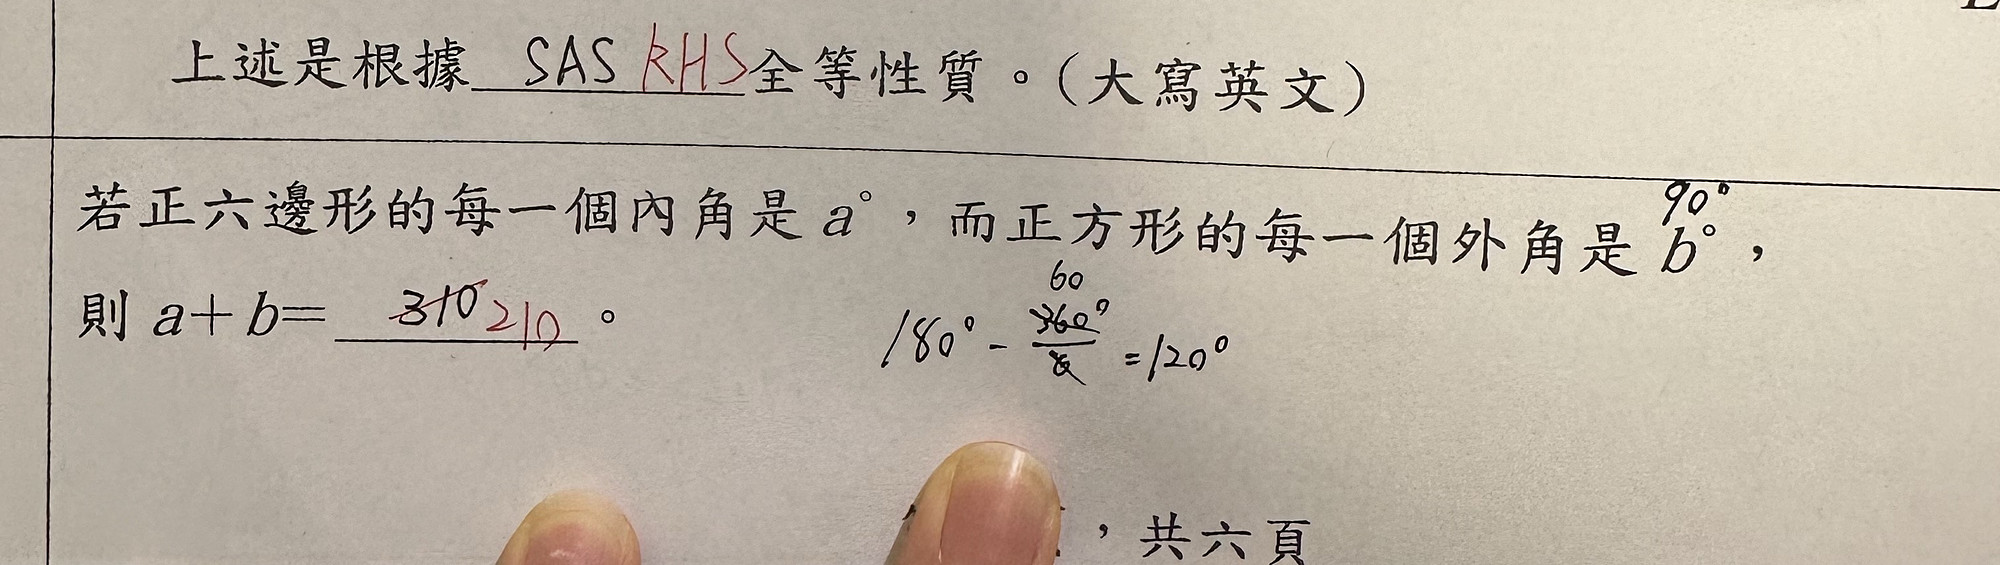 上述是根據 SAS RHS 全等性質。(大寫英文)
90°
若正六邊形的每一個內角是 a°,而正方形的每一個外角是 b°,
則 a+b= 310 210 。
60
180° - 360°/6 = 120°
,共六頁